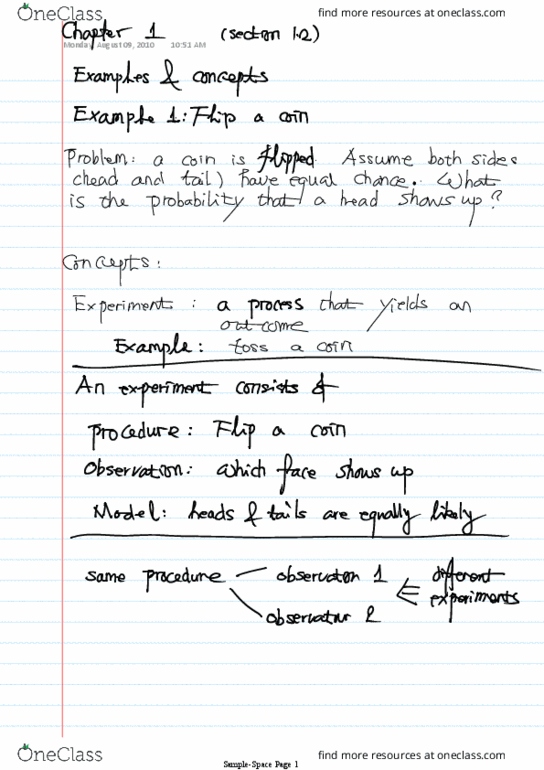 OneClass find more resources at oneclass.com
Chapter 1 (section 1-2)
Monday, August 09, 2010 10:51 AM
Examples & concepts
Example 1: Flip a coin
Problem: a coin is flipped. Assume both sides
(head and tail) have equal chance. What
is the probability that a head shows up?
Concepts:
Experiment : a process that yields an
outcome
Example: toss a coin
An experiment consists of
procedure: Flip a coin
Observation: which face shows up
Model: heads & tails are equally likely
same procedure — observation 1 ⇐ different
experiments
observation 2
OneClass find more resources at oneclass.com
Sample-Space Page 1